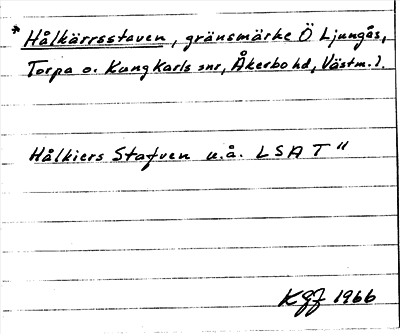 * Hålkärrsstaven, gränsmärke Ö Ljungås,
Torpa o. Kung Karls snr, Åkerbo hd, Västm. l.
Hålkiers Stafven u.å. LSA T "
KGF 1966